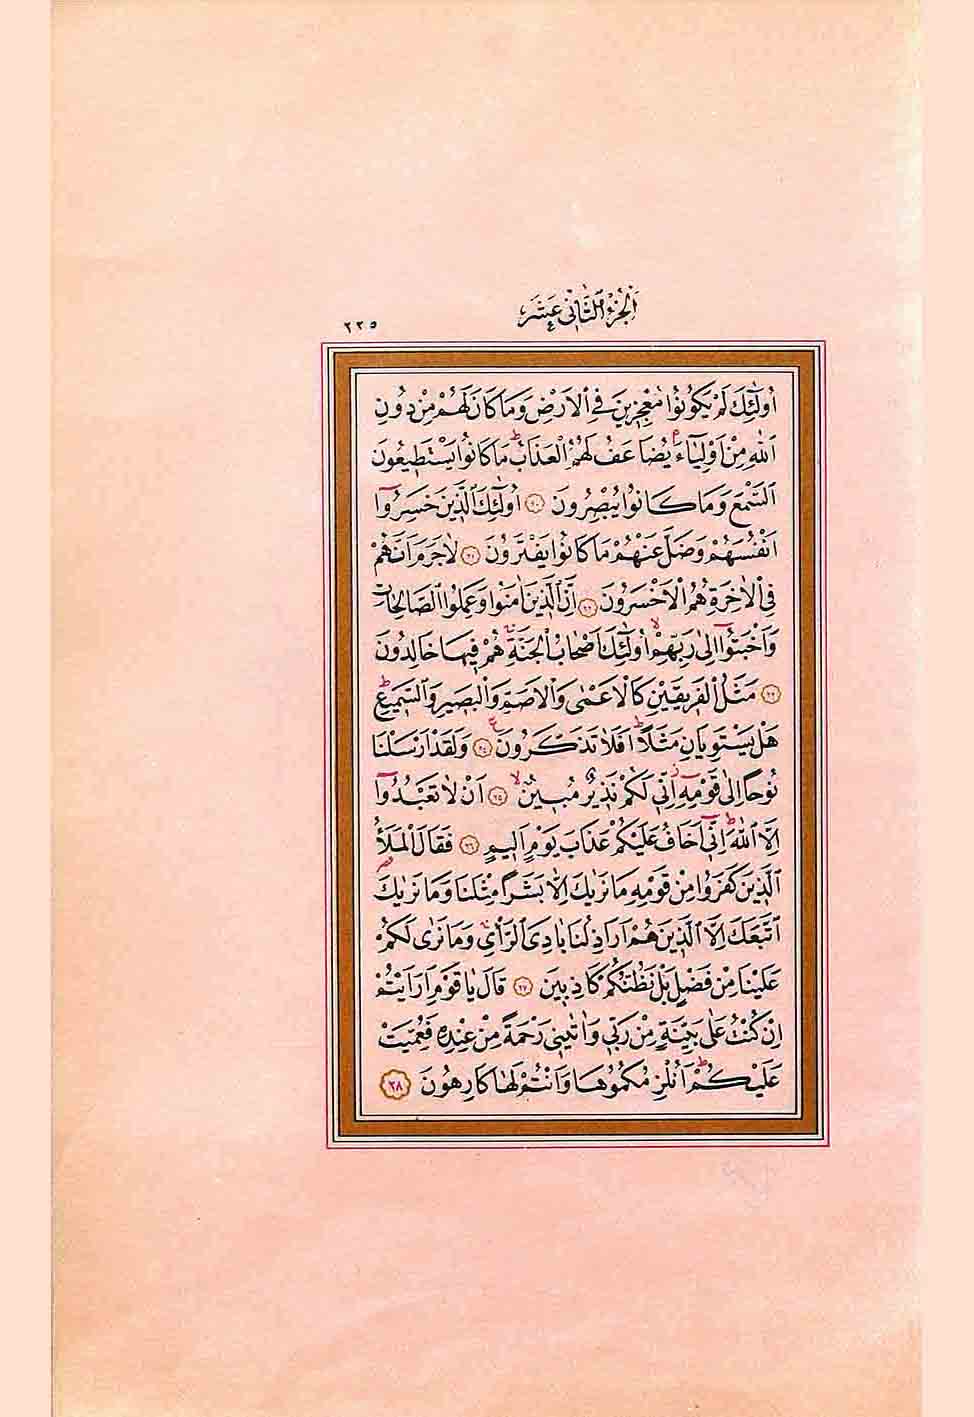 اَلْجُزْءُ الثَّانِى عَشَرَ
٢٢٥
اُولٰٓئِكَ لَمْ يَكُونُوا مُعْجِزٖينَ فِى الْاَرْضِ وَمَا كَانَ لَهُمْ مِنْ دُونِ
اللّٰهِ مِنْ اَوْلِيَٓاءَۘ يُضَاعَفُ لَهُمُ الْعَذَابُۜ مَا كَانُوا يَسْتَطٖيعُونَ
السَّمْعَ وَمَا كَانُوا يُبْصِرُونَ ﴿٢٠﴾ اُولٰٓئِكَ الَّذٖينَ خَسِرُٓوا
اَنْفُسَهُمْ وَضَلَّ عَنْهُمْ مَا كَانُوا يَفْتَرُونَ ﴿٢١﴾ لَا جَرَمَ اَنَّهُمْ
فِى الْاٰخِرَةِ هُمُ الْاَخْسَرُونَ ﴿٢٢﴾ اِنَّ الَّذٖينَ اٰمَنُوا وَعَمِلُوا الصَّالِحَاتِ
وَاَخْبَتُٓوا اِلٰى رَبِّهِمْۙ اُولٰٓئِكَ اَصْحَابُ الْجَنَّةِۚ هُمْ فٖيهَا خَالِدُونَ
﴿٢٣﴾ مَثَلُ الْفَرٖيقَيْنِ كَالْاَعْمٰى وَالْاَصَمِّ وَالْبَصٖيرِ وَالسَّمٖيعِۜ
هَلْ يَسْتَوِيَانِ مَثَلًاۜ اَفَلَا تَذَكَّرُونَࣖ ﴿٢٤﴾ وَلَقَدْ اَرْسَلْنَا
نُوحًا اِلٰى قَوْمِهٖٓۘ اِنّٖى لَكُمْ نَذٖيرٌ مُبٖينٌۙ ﴿٢٥﴾ اَنْ لَا تَعْبُدُٓوا
اِلَّا اللّٰهَۜ اِنّٖٓى اَخَافُ عَلَيْكُمْ عَذَابَ يَوْمٍ اَلٖيمٍ ﴿٢٦﴾ فَقَالَ الْمَلَاُ
الَّذٖينَ كَفَرُوا مِنْ قَوْمِهٖ مَا نَرٰيكَ اِلَّا بَشَرًا مِثْلَنَا وَمَا نَرٰيكَ
اتَّبَعَكَ اِلَّا الَّذٖينَ هُمْ اَرَاذِلُنَا بَادِىَ الرَّاْىِۚ وَمَا نَرٰى لَكُمْ
عَلَيْنَا مِنْ فَضْلٍ بَلْ نَظُنُّكُمْ كَاذِبٖينَ ﴿٢٧﴾ قَالَ يَا قَوْمِ اَرَاَيْتُمْ
اِنْ كُنْتُ عَلٰى بَيِّنَةٍ مِنْ رَبّٖى وَاٰتٰينٖى رَحْمَةً مِنْ عِنْدِهٖ فَعُمِّيَتْ
عَلَيْكُمْۜ اَنُلْزِمُكُمُوهَا وَاَنْتُمْ لَهَا كَارِهُونَ ﴿٢٨﴾